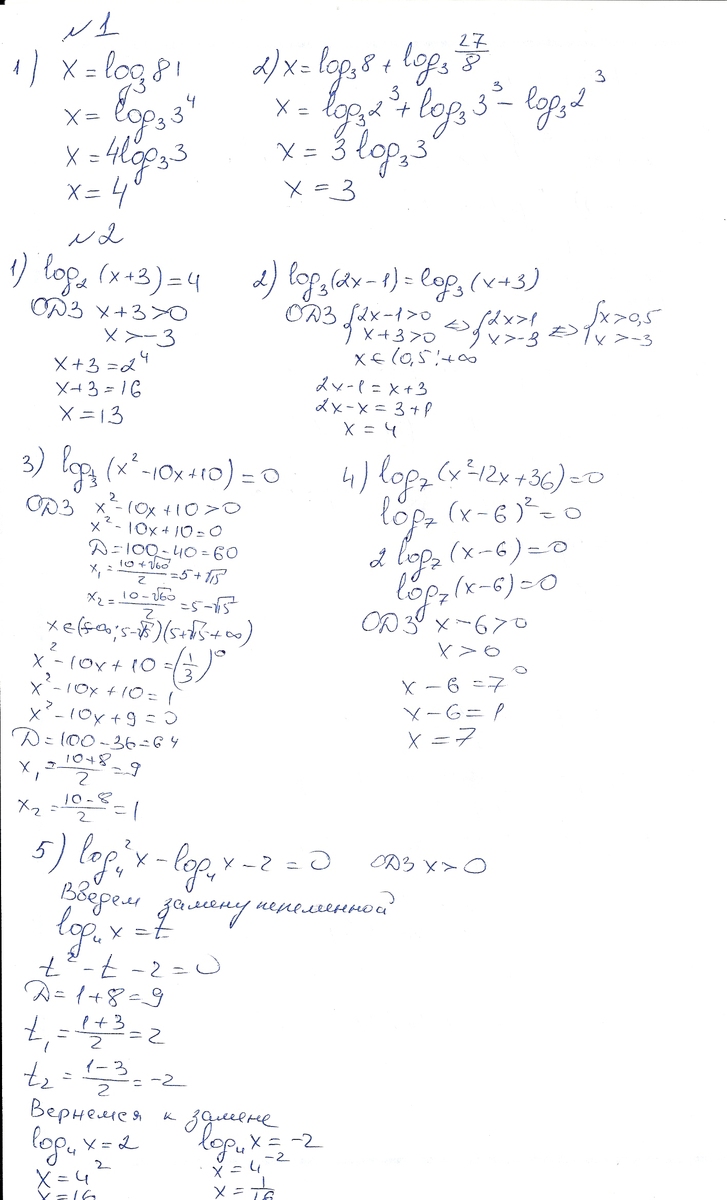 №1
1) x = log₃81
x = log₃3⁴
x = 4log₃3
x = 4
2) x = log₃8 + log₃ 27/8
x = log₃2³ + log₃3³ − log₃2³
x = 3 log₃3
x = 3
№2
1) log₂(x+3) = 4
ОДЗ x+3>0
x>−3
x+3 = 2⁴
x+3 = 16
x = 13
2) log₃(2x−1) = log₃(x+3)
ОДЗ {2x−1>0 x+3>0 <=> {2x>1 x>−3 <=> {x>0,5 x>−3
x∈(0,5; +∞
2x−1 = x+3
2x−x = 3+1
x = 4
3) log⅓(x²−10x+10) = 0
ОДЗ x²−10x+10>0
x²−10x+10=0
Д=100−40=60
x₁ = (10+√60)/2 = 5+√15
x₂ = (10−√60)/2 = 5−√15
x∈(−∞; 5−√15)(5+√15 +∞)
x²−10x+10 = (1/3)⁰
x²−10x+10 = 1
x²−10x+9 = 0
Д=100−36=64
x₁ = (10+8)/2 = 9
x₂ = (10−8)/2 = 1
4) log₇(x²−12x+36) = 0
log₇(x−6)² = 0
2 log₇(x−6) = 0
log₇(x−6) = 0
ОДЗ x−6>0
x>6
x−6 = 7⁰
x−6 = 1
x = 7
5) log₄²x − log₄x − 2 = 0 ОДЗ x>0
Введем замену переменной
log₄x = t
t² − t − 2 = 0
Д = 1+8 = 9
t₁ = (1+3)/2 = 2
t₂ = (1−3)/2 = −2
Вернемся к замене
log₄x = 2 log₄x = −2
x = 4² x = 4⁻²
x = 16 x = 1/16